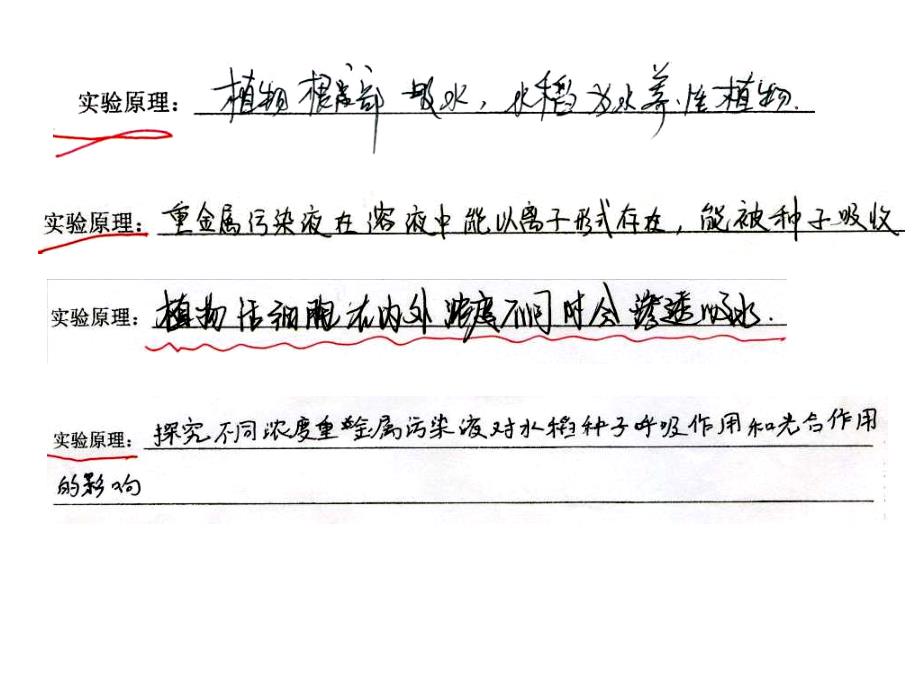 实验原理：植物根部吸水，水稻为水养性植物.
实验原理：重金属污染液在溶液中能以离子形式存在，能被种子吸收
实验原理：植物活细胞在内外浓度不同时会渗透吸水.
实验原理：探究不同浓度重金属污染液对水稻种子呼吸作用和光合作用
的影响